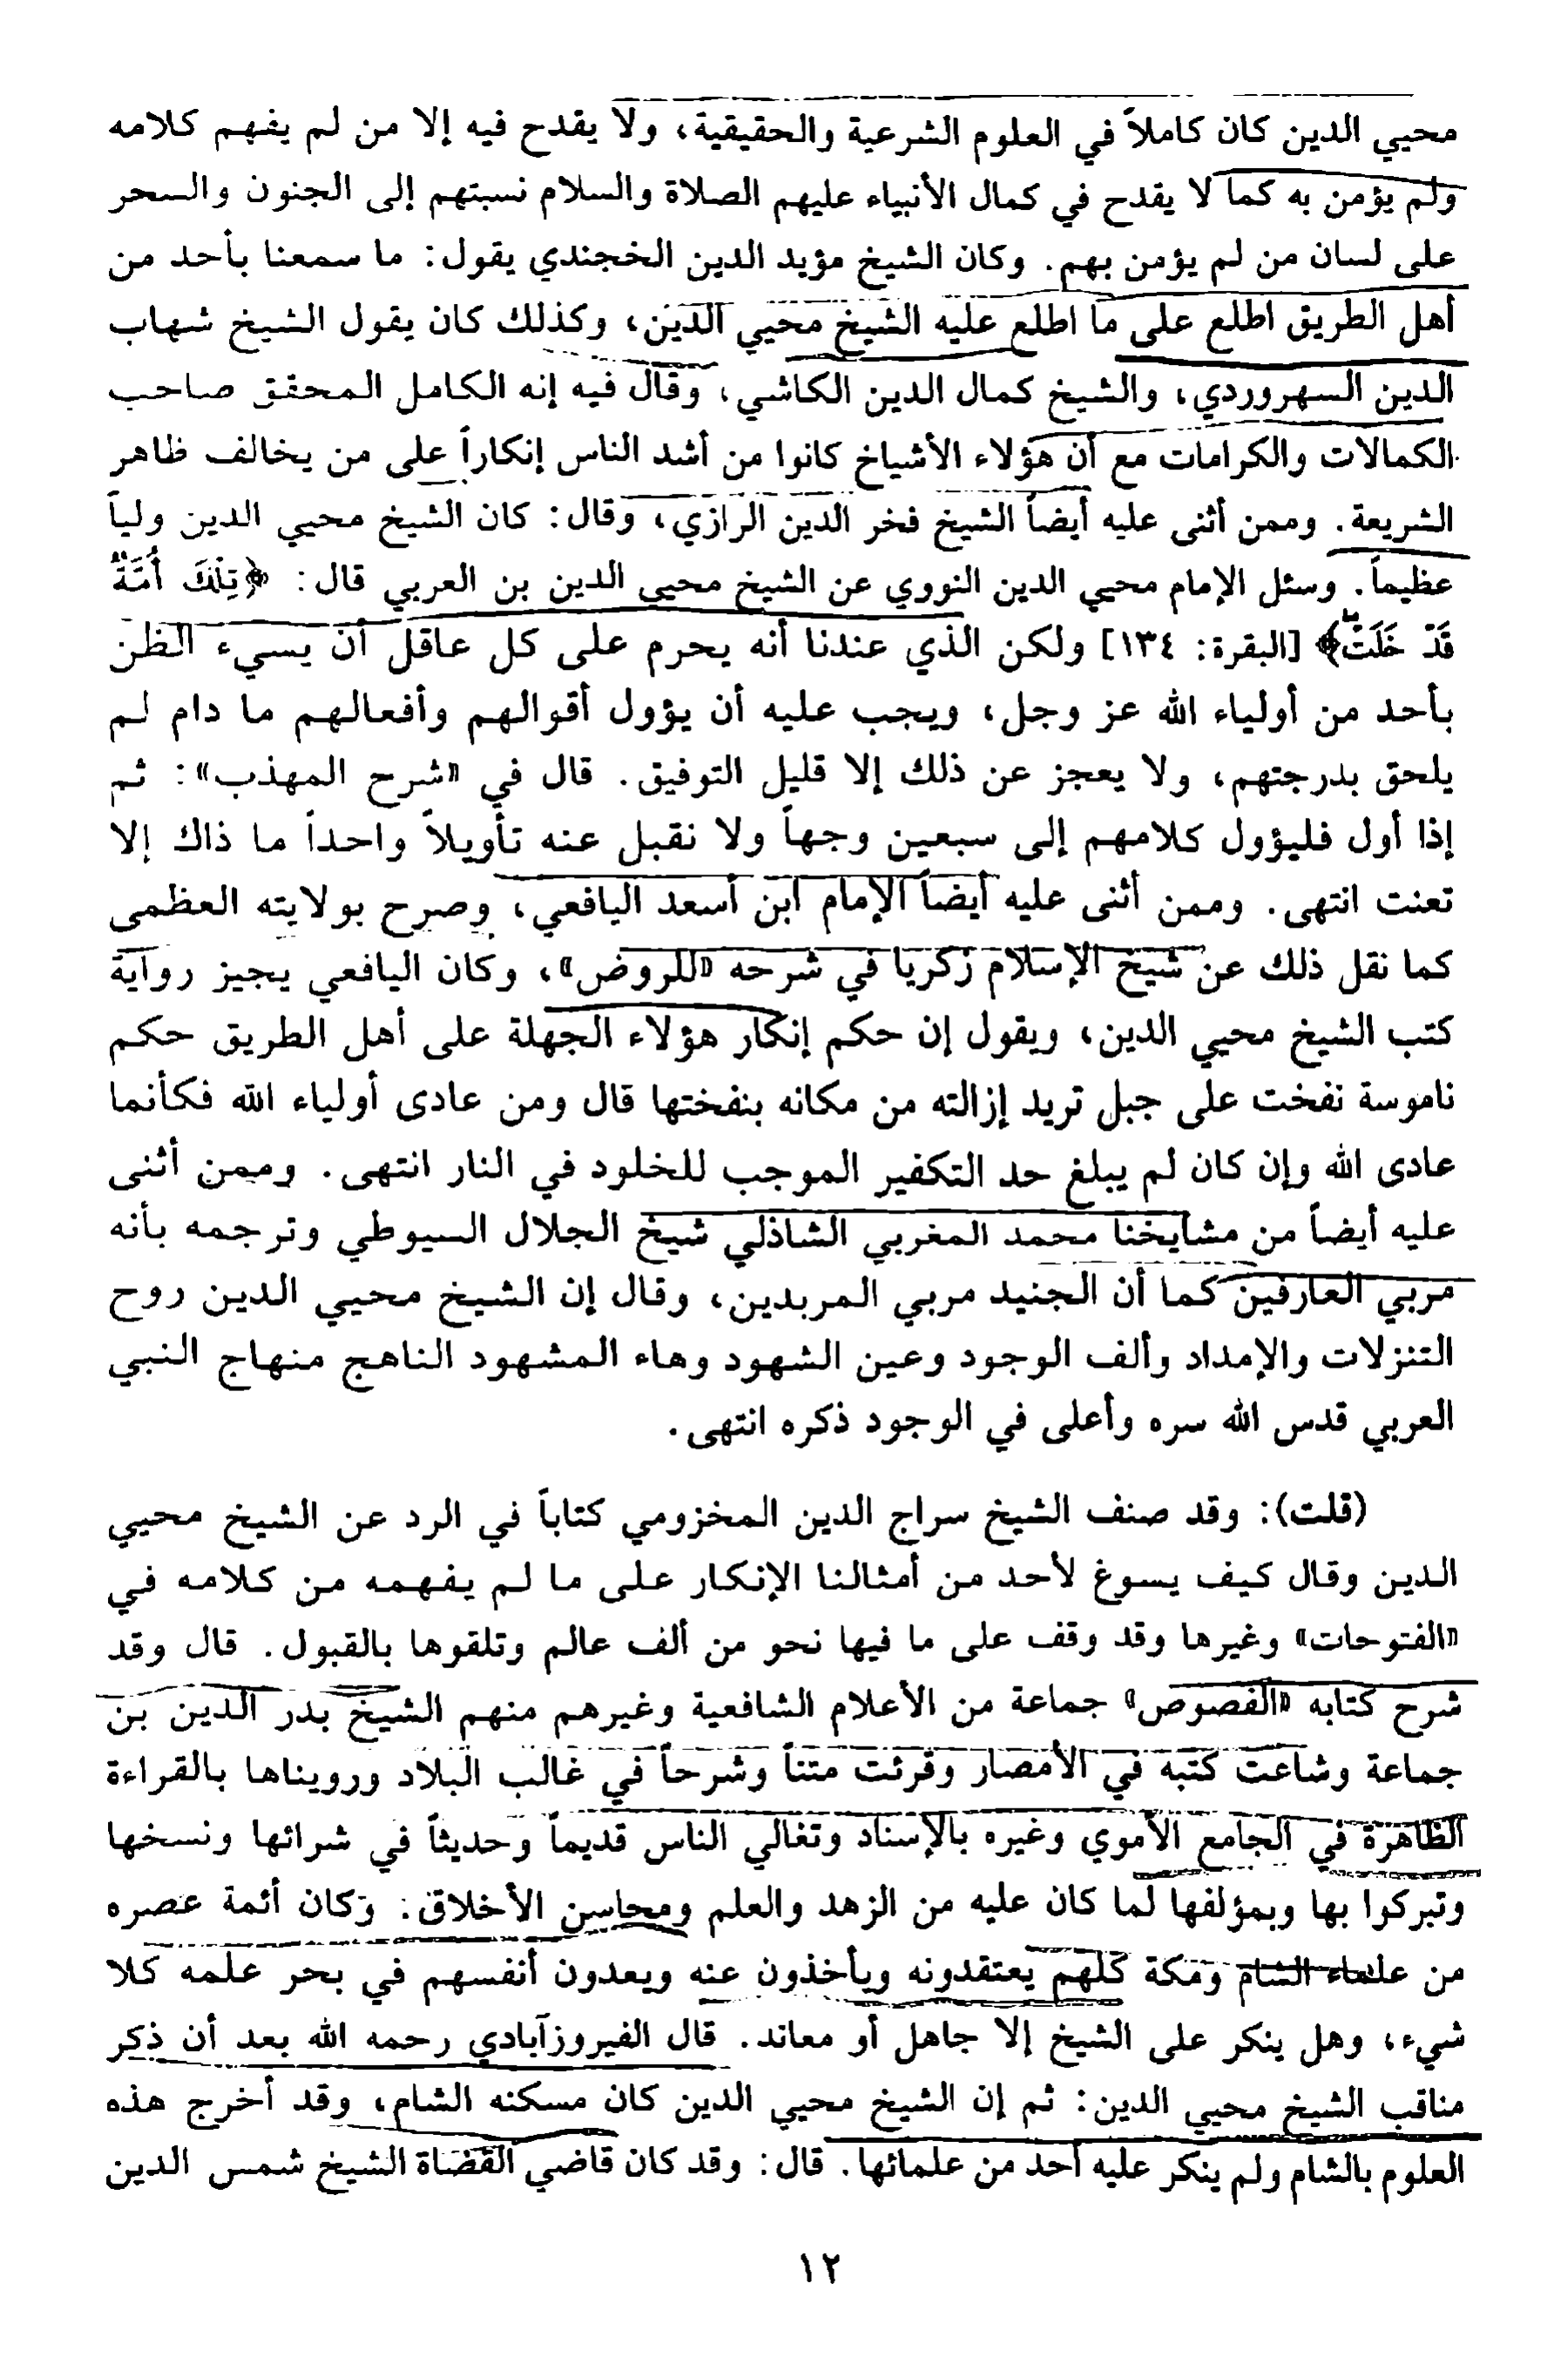 محيي الدين كان كاملاً في العلوم الشرعية والحقيقية، ولا يقدح فيه إلا من لم يفهم كلامه
ولم يؤمن به كما لا يقدح في كمال الأنبياء عليهم الصلاة والسلام نسبتهم إلى الجنون والسحر
على لسان من لم يؤمن بهم. وكان الشيخ مؤيد الدين الخجندي يقول: ما سمعنا بأحد من
أهل الطريق اطلع على ما اطلع عليه الشيخ محيي الدين، وكذلك كان يقول الشيخ شهاب
الدين السهروردي، والشيخ كمال الدين الكاشي، وقال فيه إنه الكامل المحقق صاحب
الكمالات والكرامات مع أن هؤلاء الأشياخ كانوا من أشد الناس إنكاراً على من يخالف ظاهر
الشريعة. وممن أثنى عليه أيضاً الشيخ فخر الدين الرازي، وقال: كان الشيخ محيي الدين ولياً
عظيماً. وسئل الإمام محيي الدين النووي عن الشيخ محيي الدين بن العربي قال: ﴿تِلْكَ أُمَّةٌ
قَدْ خَلَتْ﴾ [البقرة: ١٣٤] ولكن الذي عندنا أنه يحرم على كل عاقل أن يسيء الظن
بأحد من أولياء الله عز وجل، ويجب عليه أن يؤول أقوالهم وأفعالهم ما دام لم
يلحق بدرجتهم، ولا يعجز عن ذلك إلا قليل التوفيق. قال في «شرح المهذب»: ثم
إذا أول فليؤول كلامهم إلى سبعين وجهاً ولا نقبل عنه تأويلاً واحداً ما ذاك إلا
تعنت انتهى. وممن أثنى عليه أيضاً الإمام ابن أسعد اليافعي، وصرح بولايته العظمى
كما نقل ذلك عن شيخ الإسلام زكريا في شرحه «للروض»، وكان اليافعي يجيز رواية
كتب الشيخ محيي الدين، ويقول إن حكم إنكار هؤلاء الجهلة على أهل الطريق حكم
ناموسة نفخت على جبل تريد إزالته من مكانه بنفختها قال ومن عادى أولياء الله فكأنما
عادى الله وإن كان لم يبلغ حد التكفير الموجب للخلود في النار انتهى. وممن أثنى
عليه أيضاً من مشايخنا محمد المغربي الشاذلي شيخ الجلال السيوطي وترجمه بأنه
مربي العارفين كما أن الجنيد مربي المريدين، وقال إن الشيخ محيي الدين روح
التنزلات والإمداد وألف الوجود وعين الشهود وهاء المشهود الناهج منهاج النبي
العربي قدس الله سره وأعلى في الوجود ذكره انتهى.
(قلت): وقد صنف الشيخ سراج الدين المخزومي كتاباً في الرد عن الشيخ محيي
الدين وقال كيف يسوغ لأحد من أمثالنا الإنكار على ما لم يفهمه من كلامه في
«الفتوحات» وغيرها وقد وقف على ما فيها نحو من ألف عالم وتلقوها بالقبول. قال وقد
شرح كتابه «الفصوص» جماعة من الأعلام الشافعية وغيرهم منهم الشيخ بدر الدين بن
جماعة وشاعت كتبه في الأمصار وقرئت متناً وشرحاً في غالب البلاد ورويناها بالقراءة
الظاهرة في الجامع الأموي وغيره بالإسناد وتغالي الناس قديماً وحديثاً في شرائها ونسخها
وتبركوا بها وبمؤلفها لما كان عليه من الزهد والعلم ومحاسن الأخلاق: وكان أئمة عصره
من علماء الشام ومكة كلهم يعتقدونه ويأخذون عنه ويعدون أنفسهم في بحر علمه كلا
شيء، وهل ينكر على الشيخ إلا جاهل أو معاند. قال الفيروزآبادي رحمه الله بعد أن ذكر
مناقب الشيخ محيي الدين: ثم إن الشيخ محيي الدين كان مسكنه الشام، وقد أخرج هذه
العلوم بالشام ولم ينكر عليه أحد من علمائها. قال: وقد كان قاضي القضاة الشيخ شمس الدين
١٢